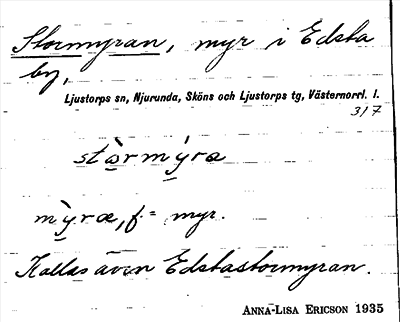 Stormyran, myr i Edsta
by,
Ljustorps sn, Njurunda, Sköns och Ljustorps tg, Västernorrl. l.
317
stàrmýra
mỳræ, f = myr.
Kallas även Edstastormyran.
ANNA-LISA ERICSON 1935